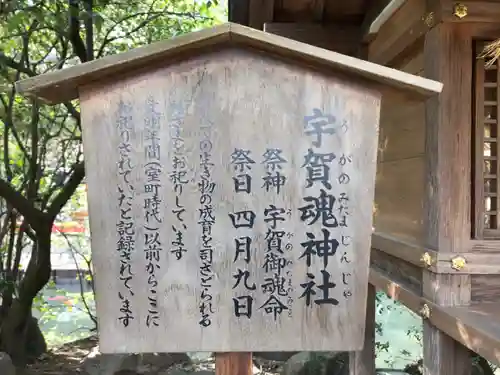 宇賀魂神社
うがのみたまじんじゃ
祭神 宇賀御魂命
祭日 四月九日
ての生き物の成育を司さどられる
お祀りしています
年間(室町時代)以前からここに
お祀りされていたと記録されています